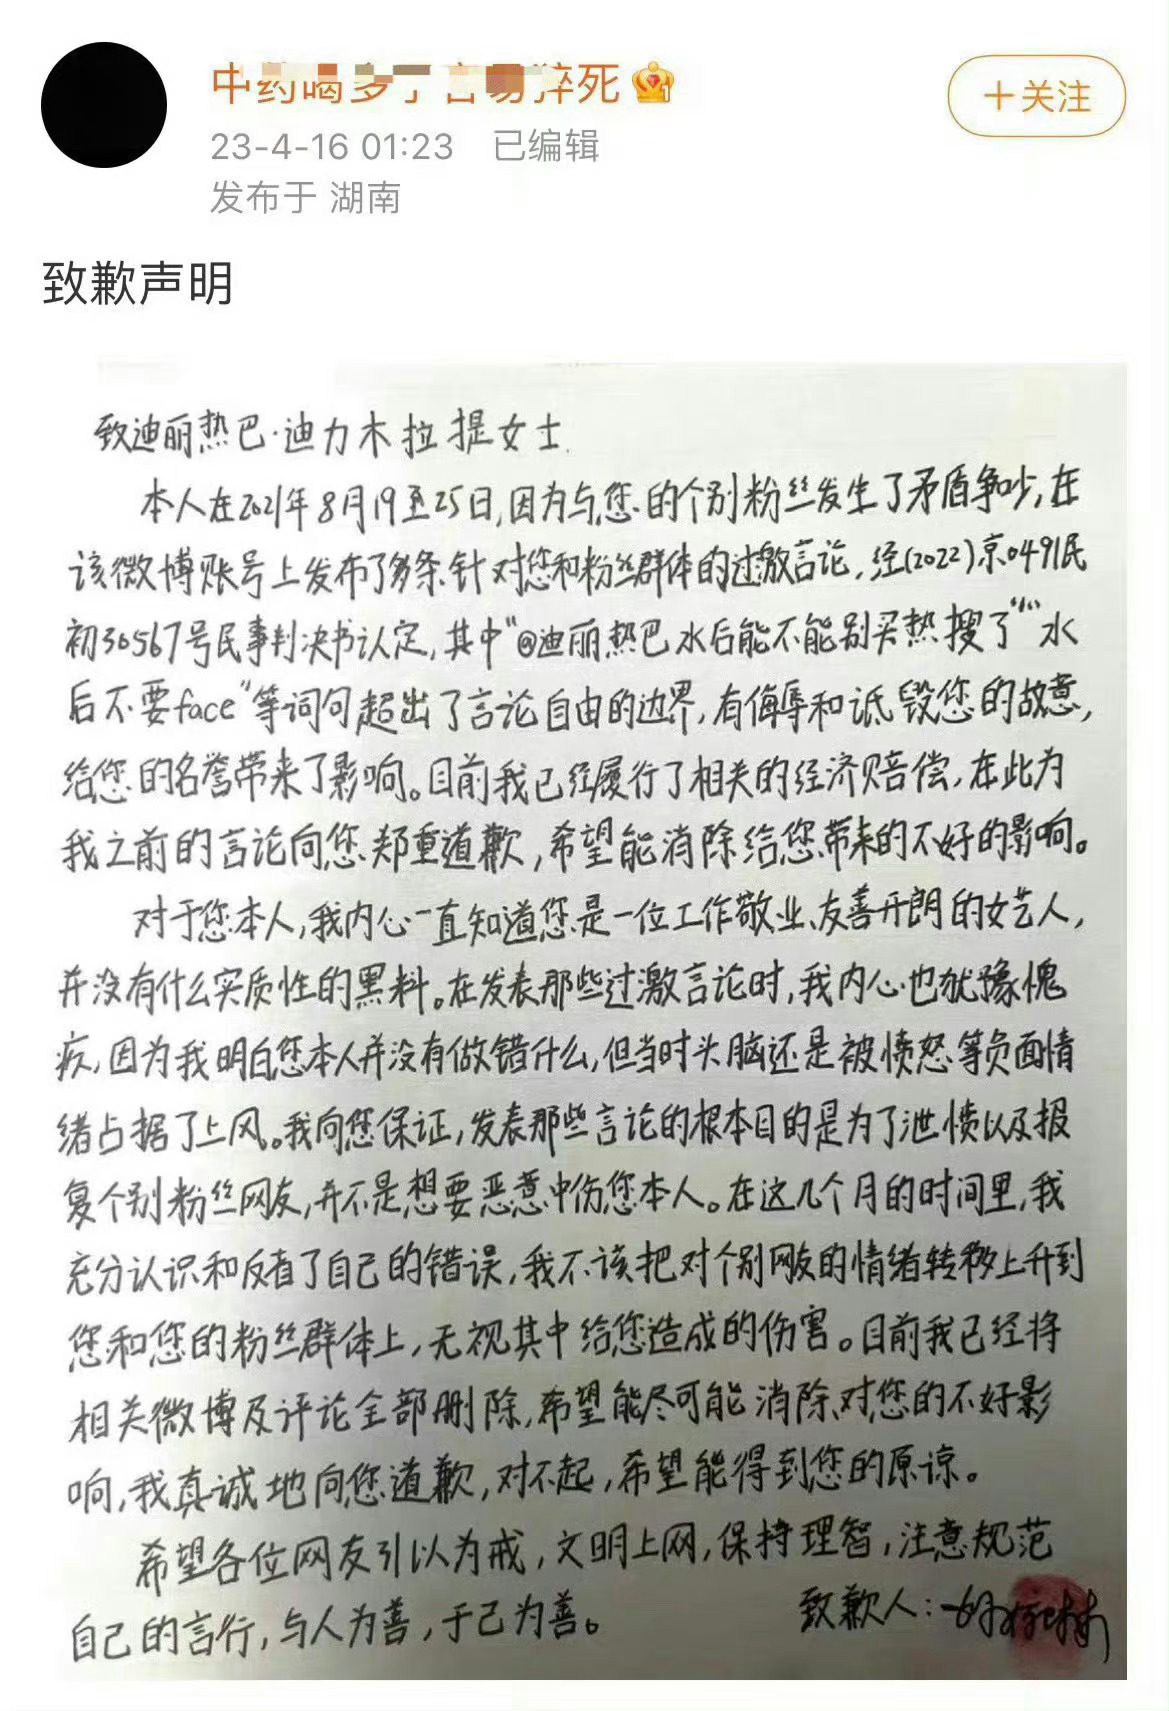 中药喝多了容易猝死
+关注
23-4-16 01:23 已编辑
发布于 湖南
致歉声明
致迪丽热巴·迪力木拉提女士
本人在2021年8月19至25日,因为与您的个别粉丝发生了矛盾争吵,在
该微博账号上发布了多条针对您和粉丝群体的过激言论,经(2022)京0491民
初30567号民事判决书认定,其中“@迪丽热巴水后能不能别买热搜了”“水
后不要face”等词句超出了言论自由的边界,有侮辱和诋毁您的故意,
给您的名誉带来了影响。目前我已经履行了相关的经济赔偿,在此为
我之前的言论向您郑重道歉,希望能消除给您带来的不好的影响。
对于您本人,我内心一直知道您是一位工作敬业、友善开朗的女艺人,
并没有什么实质性的黑料。在发表那些过激言论时,我内心也犹豫愧
疚,因为我明白您本人并没有做错什么,但当时头脑还是被愤怒等负面情
绪占据了上风。我向您保证,发表那些言论的根本目的是为了泄愤以及报
复个别粉丝网友,并不是想要恶意中伤您本人。在这几个月的时间里,我
充分认识和反省了自己的错误,我不该把对个别网友的情绪转移上升到
您和您的粉丝群体上,无视其中给您造成的伤害。目前我已经将
相关微博及评论全部删除,希望能尽可能消除对您的不好影
响,我真诚地向您道歉,对不起,希望能得到您的原谅。
希望各位网友引以为戒,文明上网,保持理智,注意规范
自己的言行,与人为善,于己为善。
致歉人: